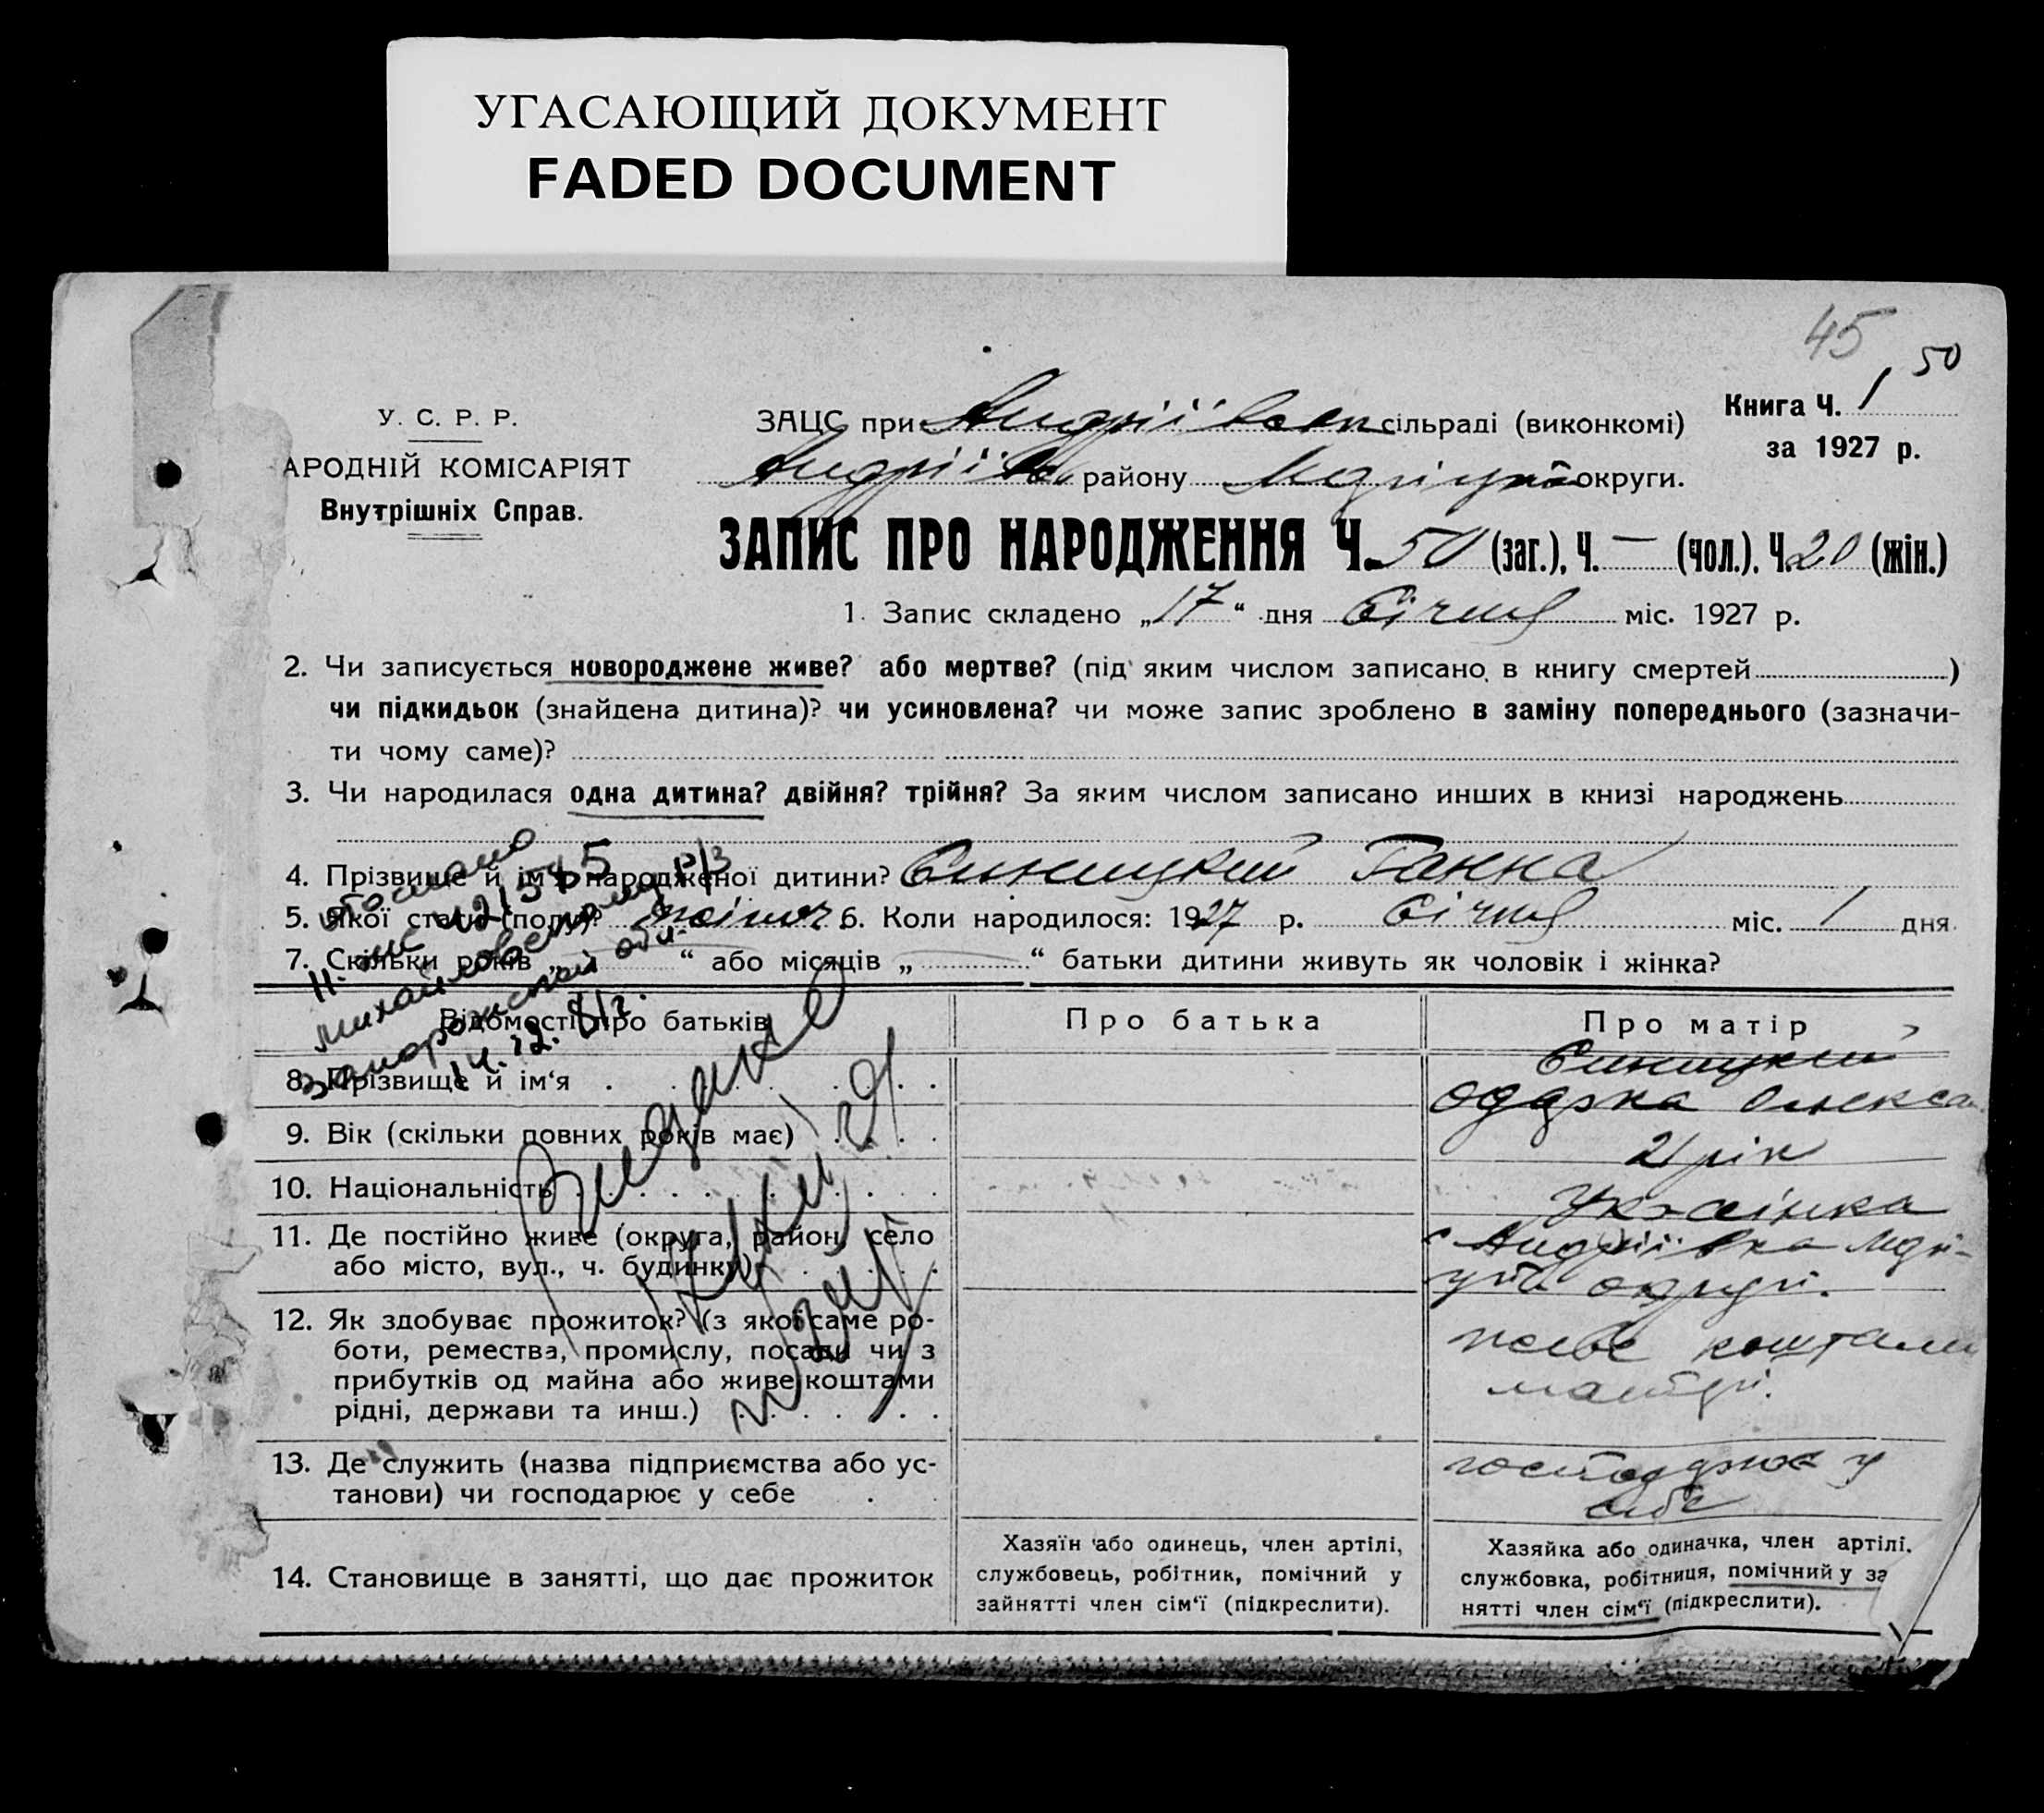 УГАСАЮЩИЙ ДОКУМЕНТ
FADED DOCUMENT
45
50
У. С. Р. Р.
АРОДНІЙ КОМІСАРІЯТ
Внутрішніх Справ.
Книга Ч. 1
за 1927 р.
ЗАЦС при Андріївськ сільраді (виконкомі)
Андріївськ району округи.
ЗАПИС ПРО НАРОДЖЕННЯ Ч. 50 (заг.), Ч. — (чол.), Ч. 20 (жін.)
1. Запис складено „17“ дня Січня міс. 1927 р.
2. Чи записується новороджене живе? або мертве? (під яким числом записано в книгу смертей )
чи підкидьок (знайдена дитина)? чи усиновлена? чи може запис зроблено в заміну попереднього (зазначи-
ти чому саме)?
3. Чи народилася одна дитина? двійня? трійня? За яким числом записано инших в книзі народжень
4. Прізвище й ім'я народженої дитини? Синицкий Ганна
5. Якої стати (полу)? жіноч. 6. Коли народилося: 1927 р. Січня міс. 1 дня
7. Скільки років „ “ або місяців „ “ батьки дитини живуть як чоловік і жінка?
14.12.
Відомості про батьків
Про батька
Про матір
8. Прізвище й ім‘я
Синицкий
Одарка Олекса
9. Вік (скільки повних років має)
21 рік
10. Національність
Українка
11. Де постійно живе (округа, район, село
або місто, вул., ч. будинку)
с Андріївка
округи.
12. Як здобуває прожиток? (з якої саме ро-
боти, ремества, промислу, посади чи з
прибутків од майна або живе коштами
рідні, держави та инш.)
живе коштами
матері.
13. Де служить (назва підприємства або ус-
танови) чи господарює у себе
господарює у
себе
14. Становище в занятті, що дає прожиток
Хазяїн або одинець, член артілі,
службовець, робітник, помічний у
зайнятті член сім‘ї (підкреслити).
Хазяйка або одиначка, член артілі,
службовка, робітниця, помічний у за
нятті член сім‘ї (підкреслити).